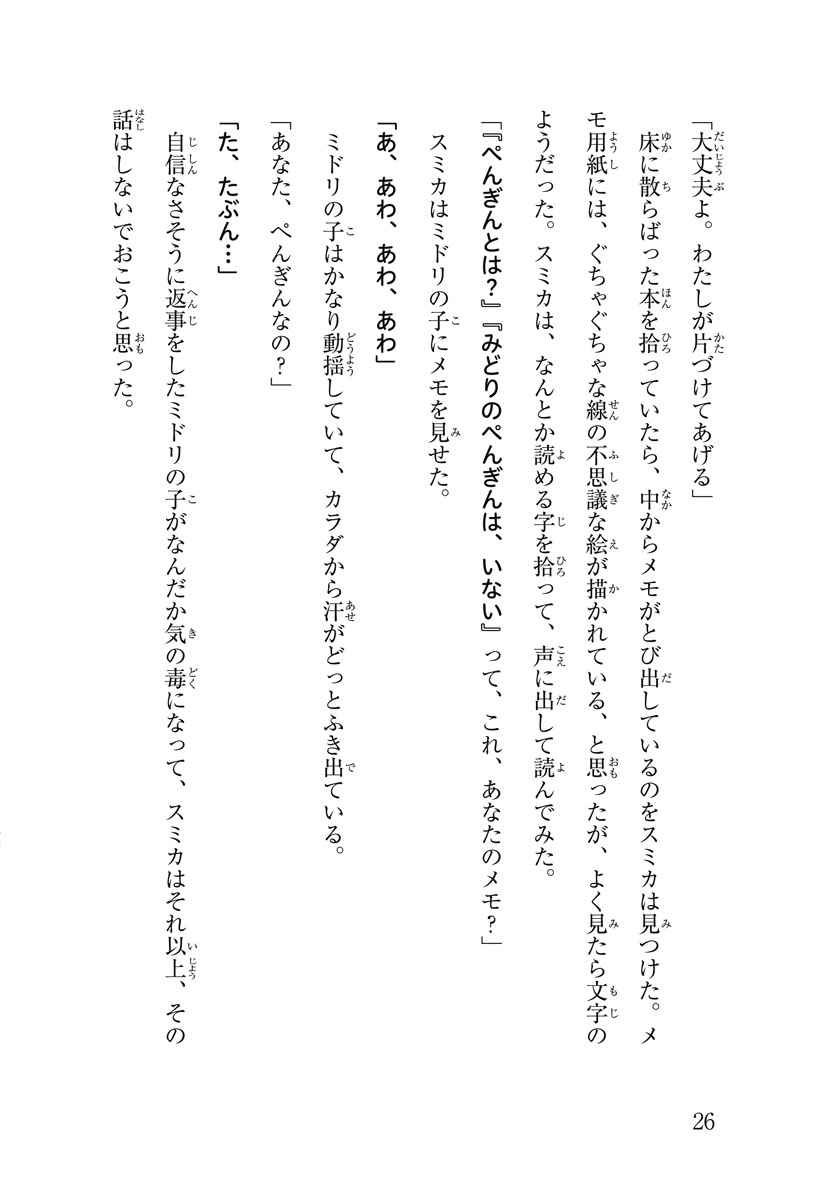 「大丈夫よ。わたしが片づけてあげる」
床に散らばった本を拾っていたら、中からメモがとび出しているのをスミカは見つけた。メ
モ用紙には、ぐちゃぐちゃな線の不思議な絵が描かれている、と思ったが、よく見たら文字の
ようだった。スミカは、なんとか読める字を拾って、声に出して読んでみた。
「『ぺんぎんとは？』『みどりのぺんぎんは、いない』って、これ、あなたのメモ？」
スミカはミドリの子にメモを見せた。
「あ、あわ、あわ、あわ」
ミドリの子はかなり動揺していて、カラダから汗がどっとふき出ている。
「あなた、ぺんぎんなの？」
「た、たぶん…」
自信なさそうに返事をしたミドリの子がなんだか気の毒になって、スミカはそれ以上、その
話はしないでおこうと思った。
26